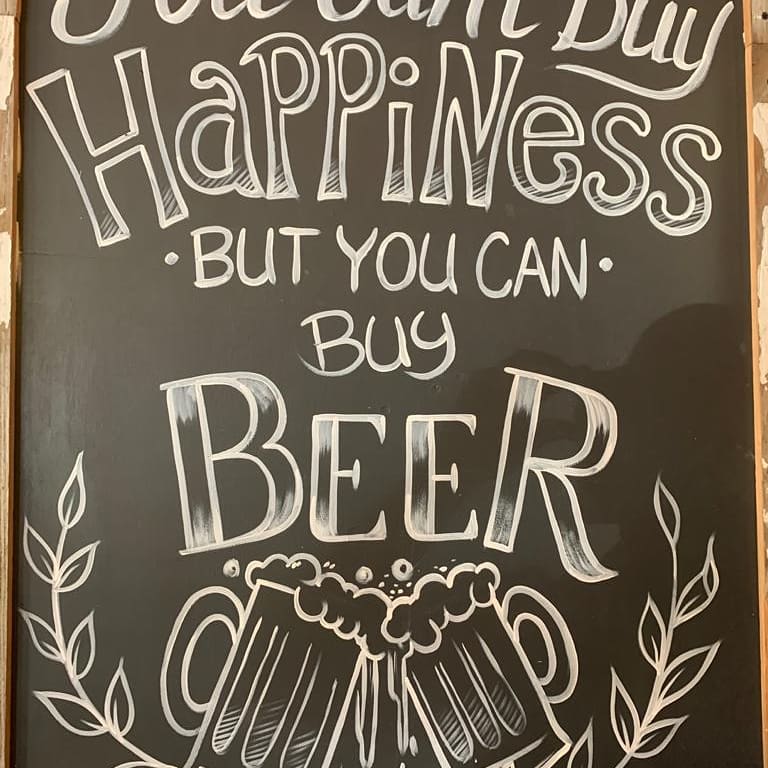 You can't Buy
HaPPiNess
• BUT YOU CAN •
BUY
BEER